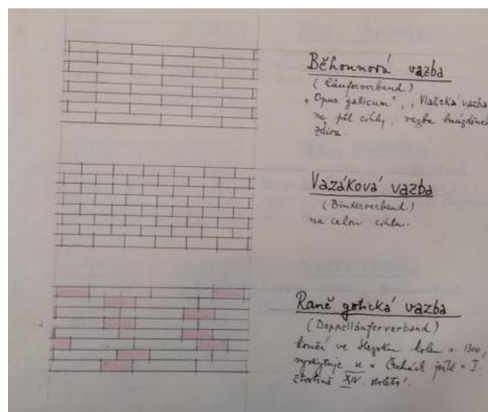 Běhounová vazba
(Läuferverband)
"Opus gallicum", Vlašská vazba
na půl cihly, vazba
zdiva.
Vazáková vazba
(Binderverband)
na celou cihlu.
Raně gotická vazba
(Doppelläuferverband)
končí ve Slezsku kolem r. 1300,
vyskytuje se v Čechách ještě v I.
čtvrtině XIV. století.